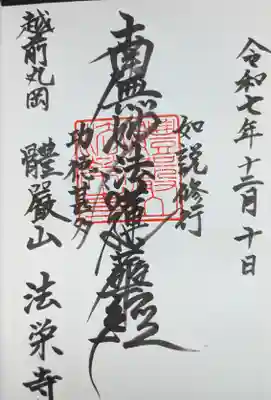 令和七年十二月十日
如説修行
南無妙法蓮華経
功徳甚多
越前丸岡
體嚴山 法栄寺